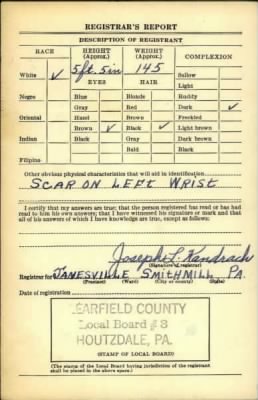 REGISTRAR'S REPORT
DESCRIPTION OF REGISTRANT
RACE HEIGHT (Approx.) WEIGHT (Approx.) COMPLEXION
White ✓ 5 ft. 5 in 145 Sallow
EYES HAIR Light
Negro Blue Blonde Ruddy
Gray Red Dark ✓
Oriental Hazel Brown Freckled
Brown ✓ Black ✓ Light brown
Indian Black Gray Dark brown
Bald Black
Filipino
Other obvious physical characteristics that will aid in identification
SCAR ON LEFT WRIST
I certify that my answers are true; that the person registered has read or has
had read to him his own answers; that I have witnessed his signature or mark and that
all of his answers of which I have knowledge are true, except as follows:
Joseph L. Kandrach
(Signature of registrar)
Registrar for JANESVILLE SMITHMILL PA.
(Precinct) (Ward) (City or county) (State)
Date of registration
EARFIELD COUNTY
Local Board #3
HOUTZDALE, PA.
(STAMP OF LOCAL BOARD)
(The stamp of the Local Board having jurisdiction of the registrant
shall be placed in the above space.)